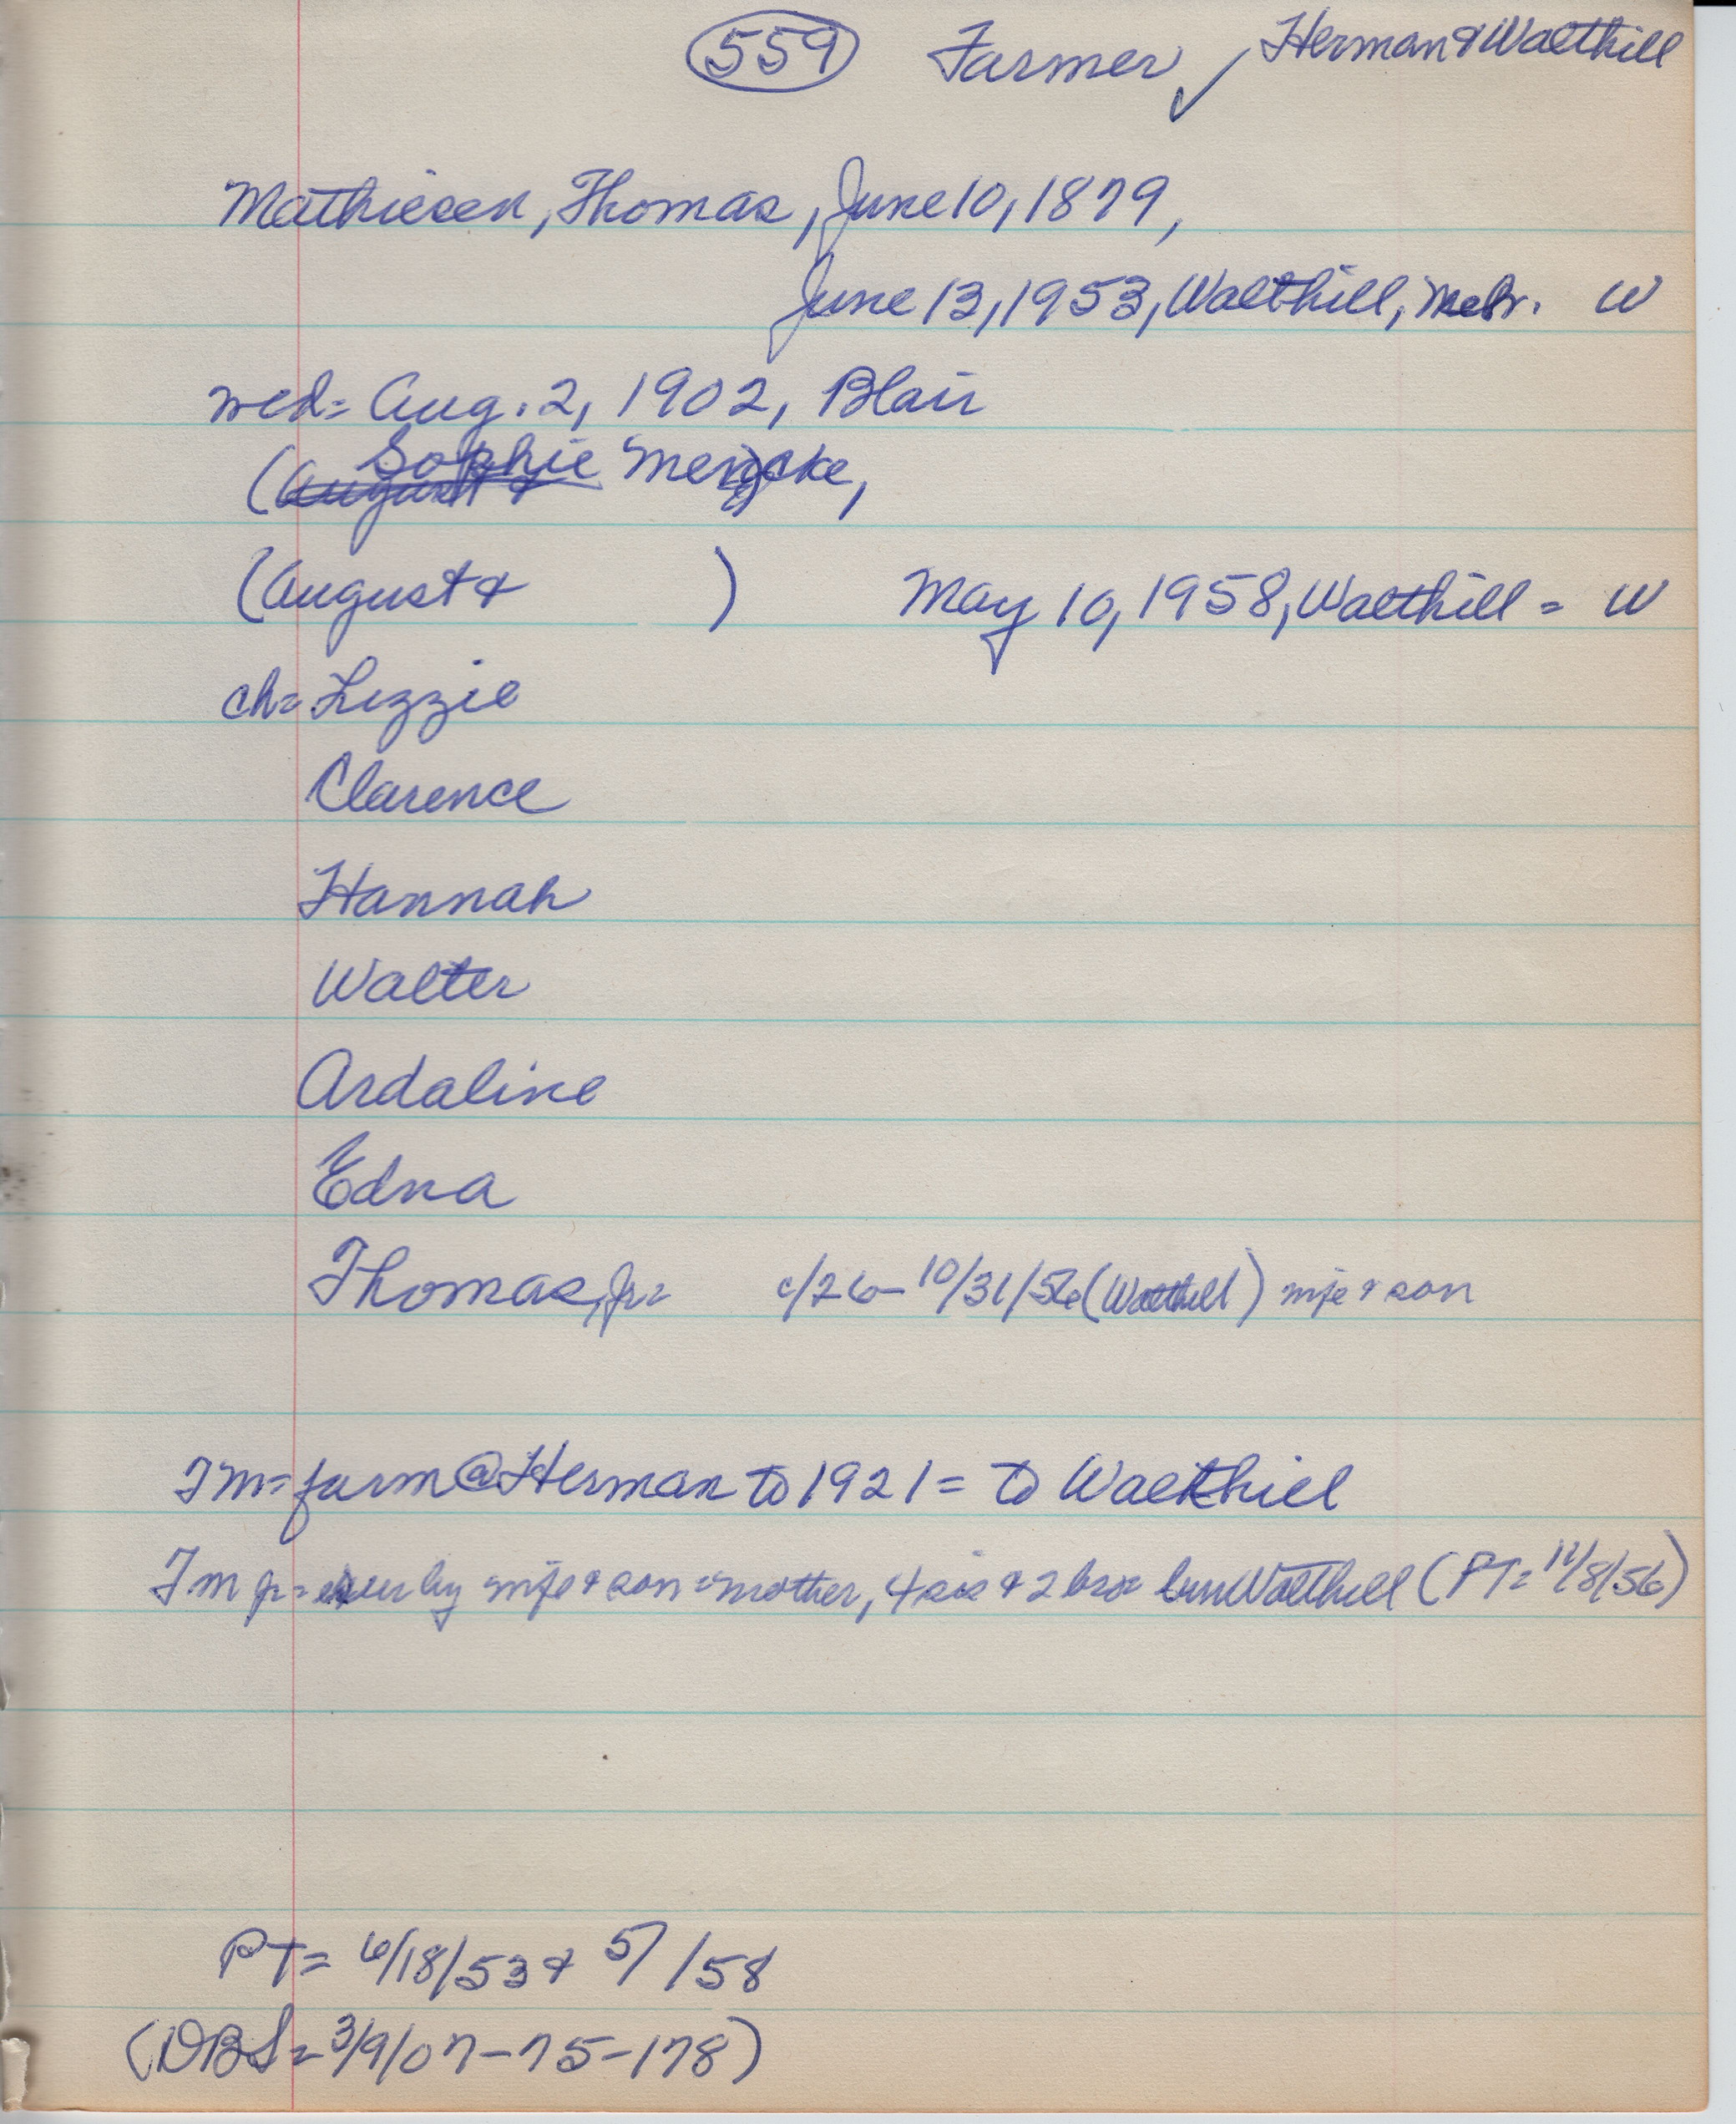 559 Farmer ✓ Herman & Walthill
Mathiesen, Thomas, June 10, 1879,
June 13, 1953, Walthill, Nebr. W
wed= Aug. 2, 1902, Blair
(August & Sophie Mencke,
(August & ) May 10, 1958, Walthill = W
ch= Lizzie
Clarence
Hannah
Walter
Ardaline
Edna
Thomas, Jr= c/26-10/31/56 (Walthill) wife & son
TM= farm @ Herman to 1921 = to Walthill
TM jr= sur by wife & son = mother, 4 sis & 2 bro= Walthill (PT= 11/8/56)
PT= 6/18/53 & 5/ /58
(DBS= 3/9/07-75-178)